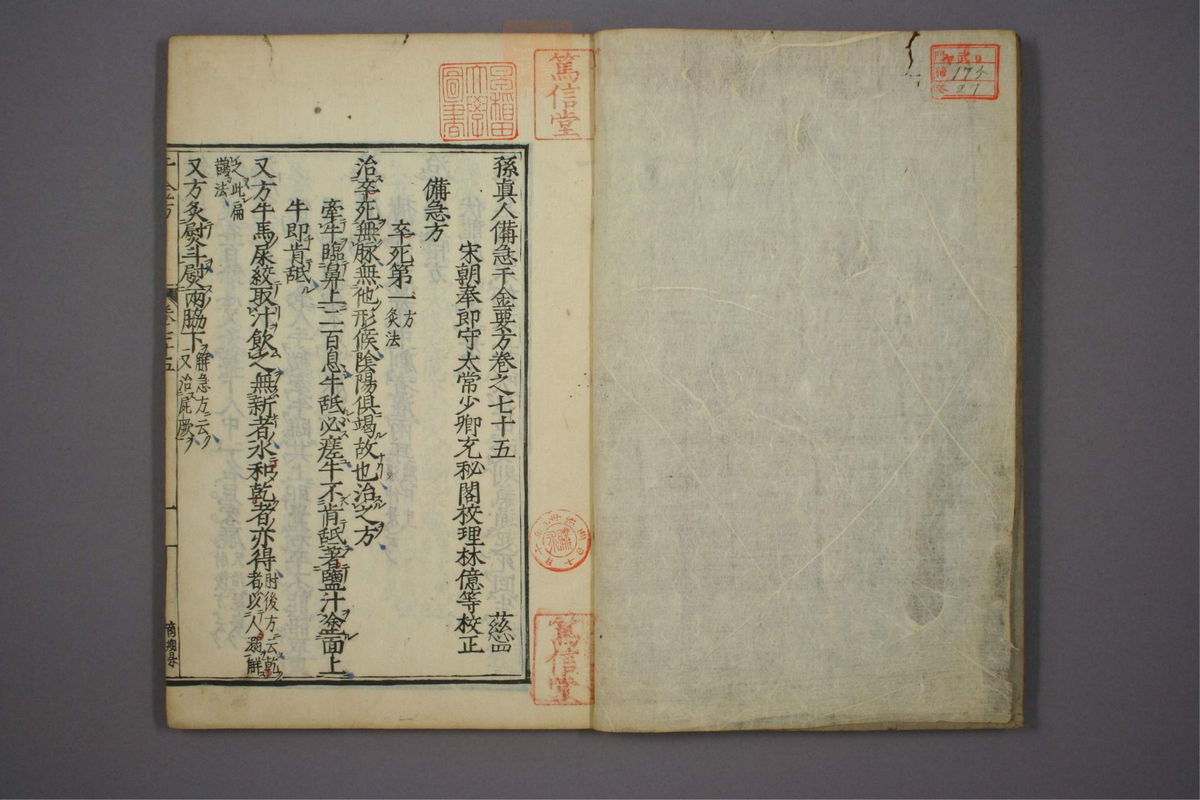 孫真人備急千金要方卷之七十五 慈四
宋朝奉郎守太常少卿充秘閣校理林億等校正
備急方
卒死第一 方 灸法
治卒死無脉無他形候陰陽俱竭故也治之方
牽牛臨鼻上二百息牛舐必瘥牛不肯舐著鹽汁塗面上
牛即肯舐
又方牛馬屎絞取汁飲之無新者水和乾者亦得 肘後方云乾者以人溺解
之此扁鵲法
又方灸熨斗熨兩脇下 解急方云又治尸厥
篤信堂
早稲田大學圖書
篤信堂